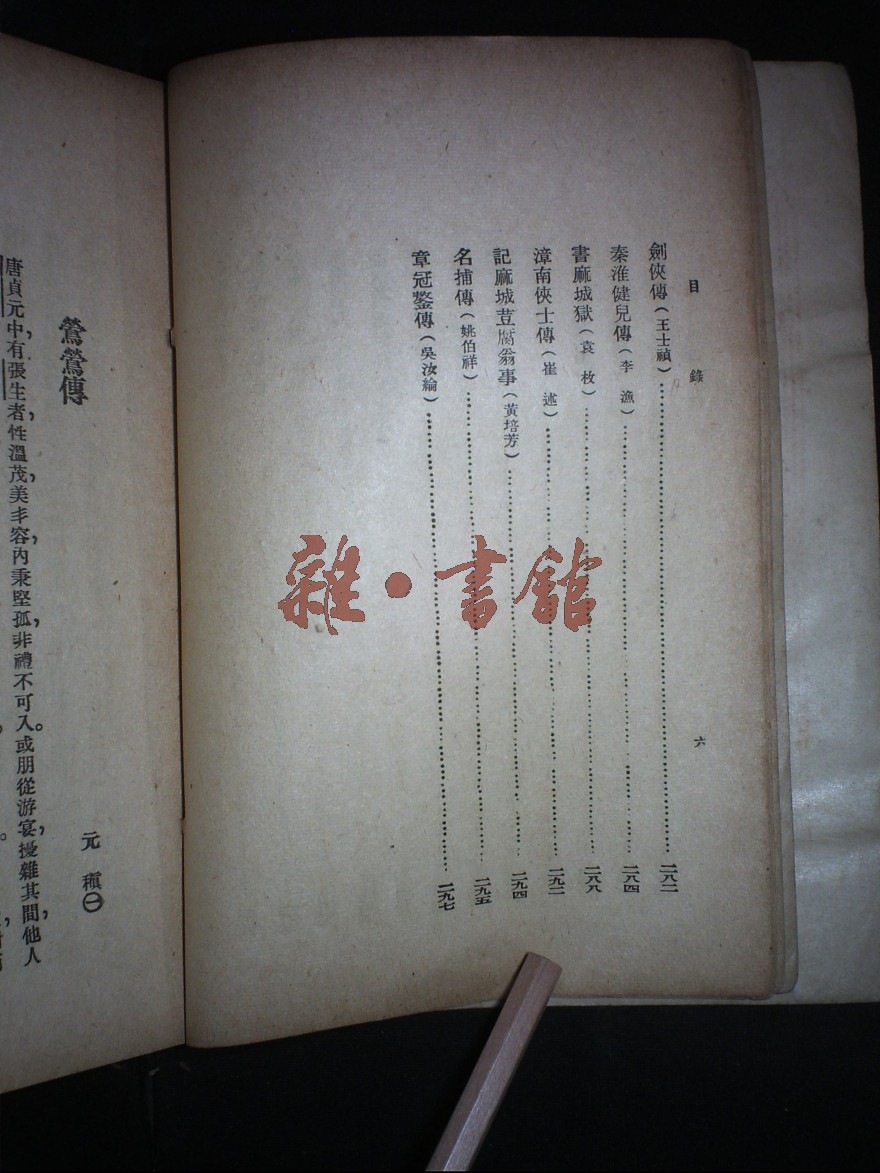 目錄
六
劍俠傳（王士禎）……二八二
秦淮健兒傳（李漁）……二八四
書麻城獄（袁枚）……二八八
漳南俠士傳（崔述）……二九二
記麻城荳腐翁事（黃培芳）……二九四
名捕傳（姚伯祥）……二九五
章冠鰲傳（吳汝綸）……二九七
鶯鶯傳
元稹㊀
唐貞元中，有張生者，性溫茂，美丰容，內秉堅孤，非禮不可入。或朋從游宴，擾雜其間，他人
雜·書館